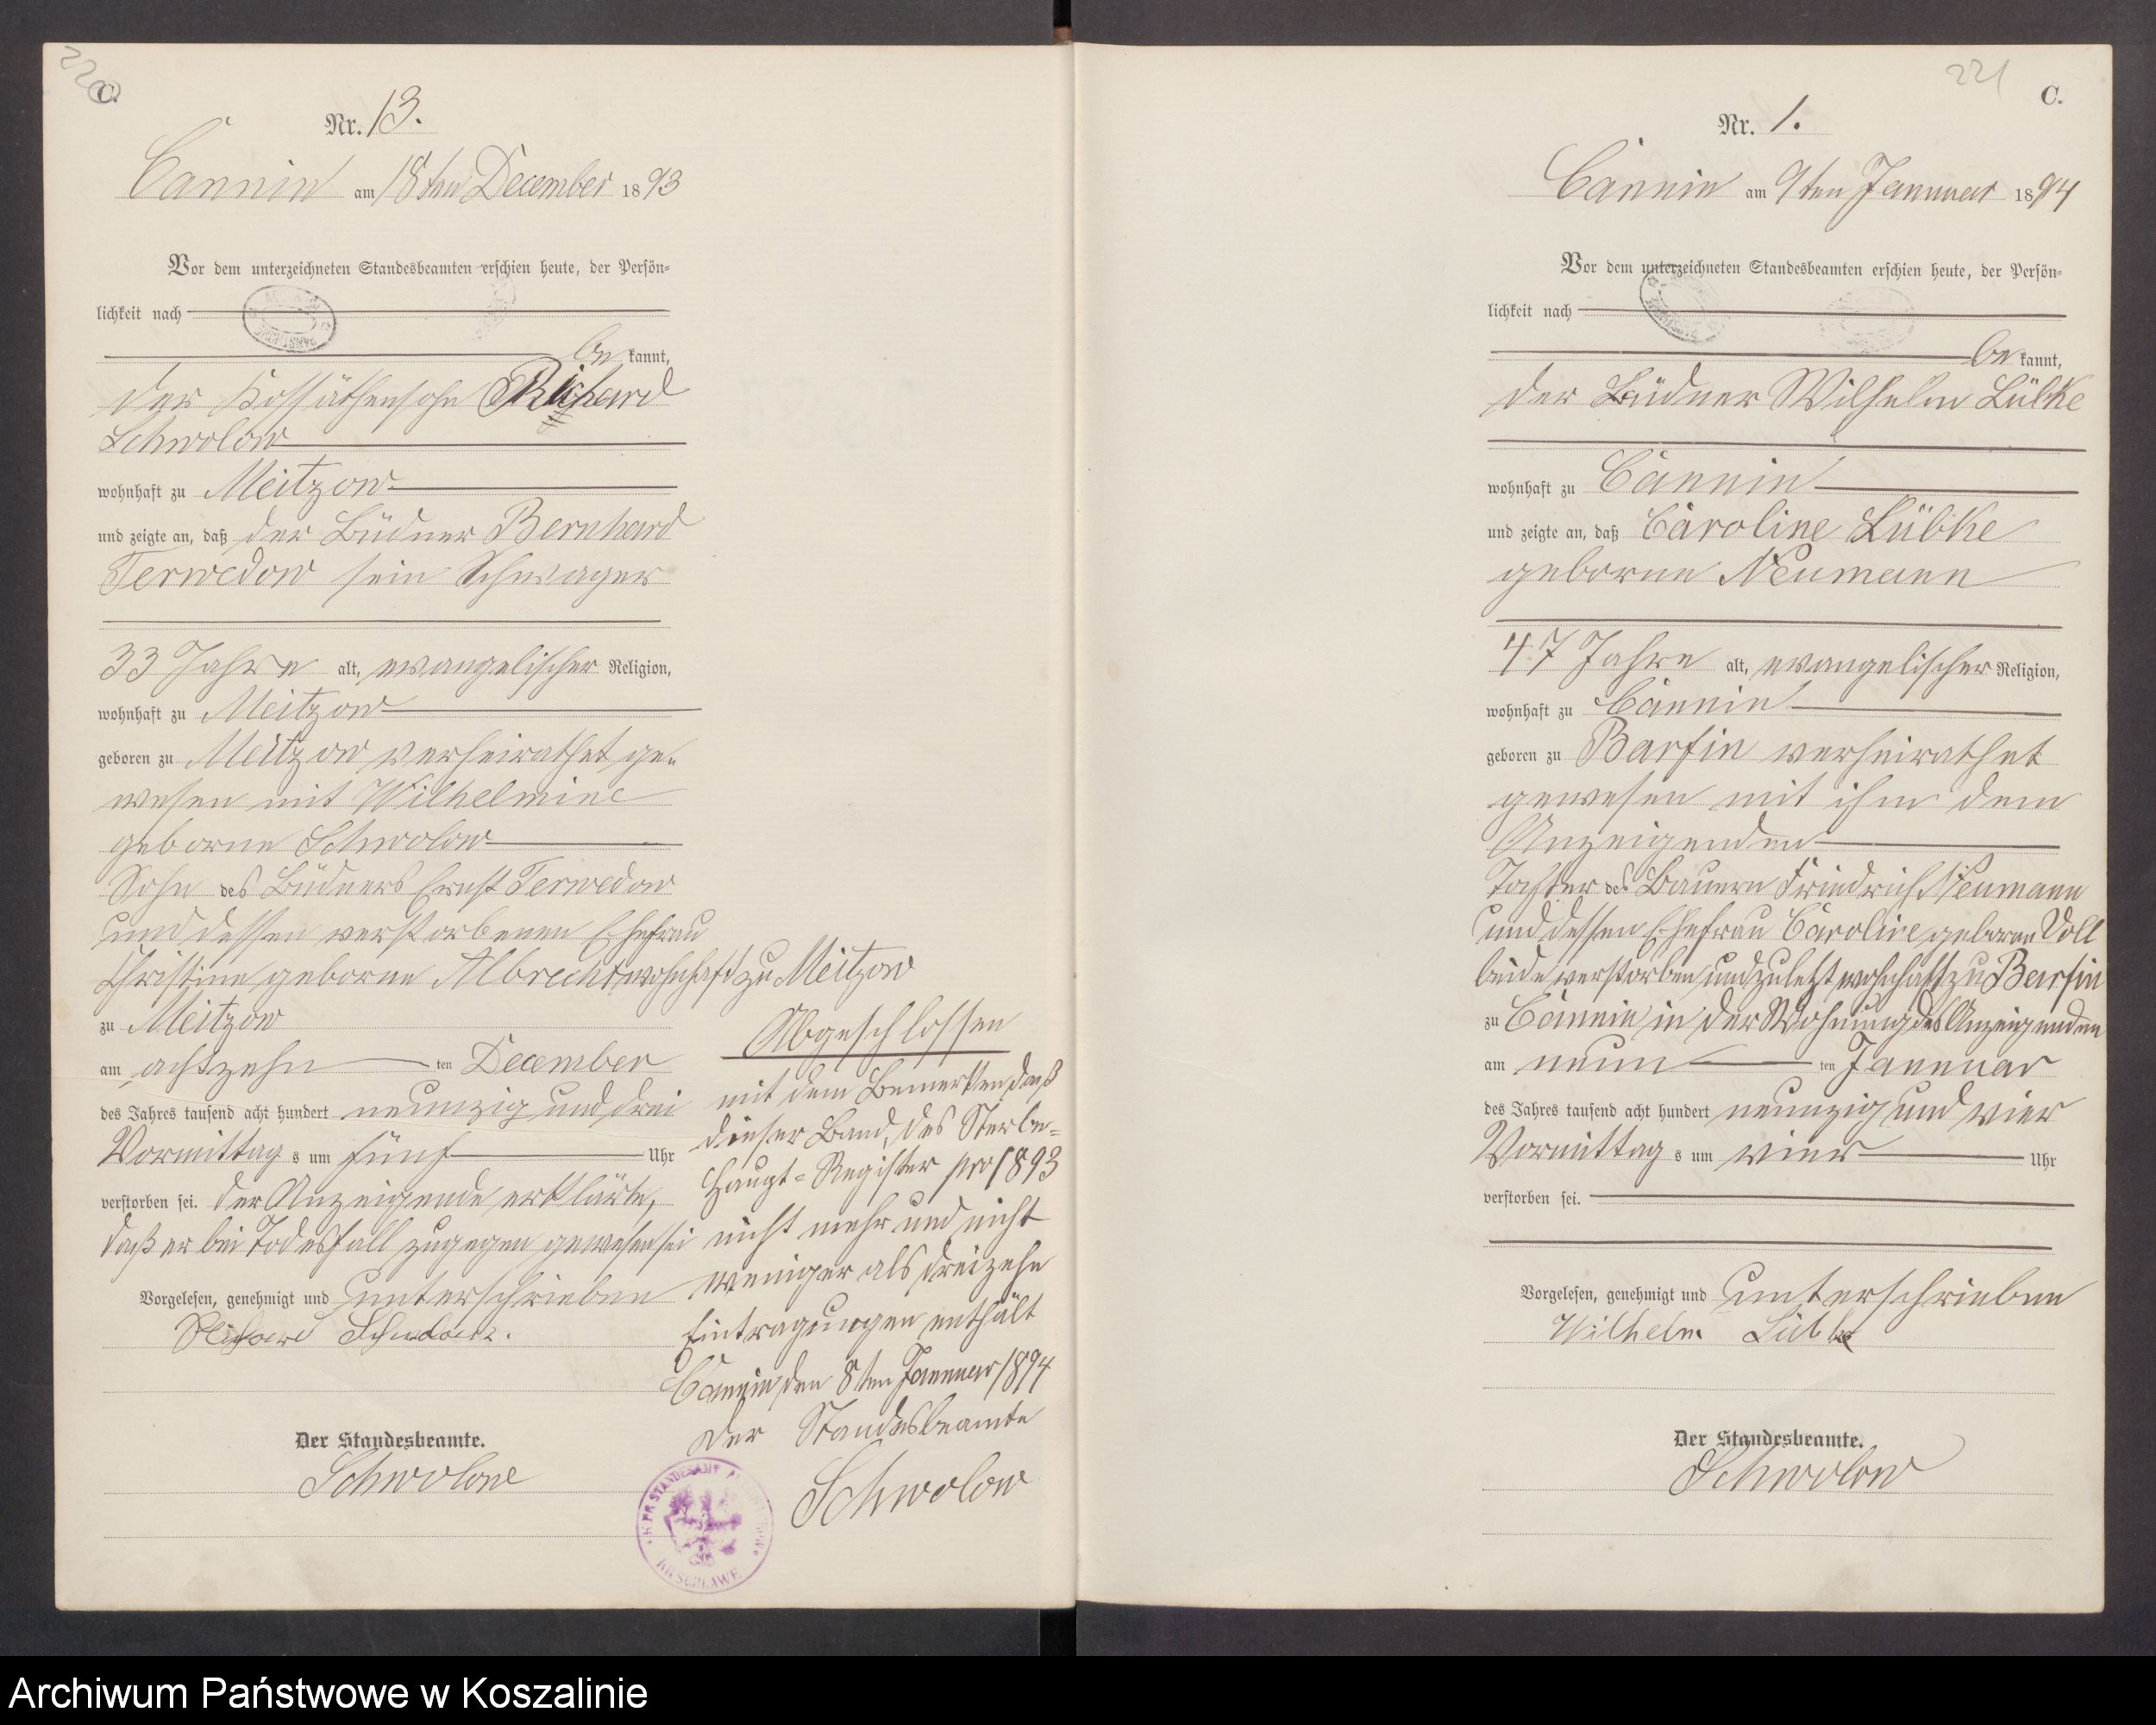 220
C.
Nr. 13.
Cannin am 18ten December 1893
Vor dem unterzeichneten Standesbeamten erschien heute, der Persön-
lichkeit nach
be kannt,
der Kossäthensohn Richard
Schwolow
wohnhaft zu Meitzow
und zeigte an, daß der Büdner Bernhard
Terwedow sein Schwager
33 Jahre alt, evangelischer Religion,
wohnhaft zu Meitzow
geboren zu Meitzow verheirathet ge-
wesen mit Wilhelmine
geborne Schwolow
Sohn des Büdners Ernst Terwedow
und dessen verstorbenen Ehefrau
Christine geborne Albrecht wohnhaft zu Meitzow
zu Meitzow
am achtzehn ten December
des Jahres tausend acht hundert neunzig und drei
Vormittag s um fünf Uhr
verstorben sei. der Anzeigende erklärte,
daß er bei Todesfall zugegen gewesen sei
Vorgelesen, genehmigt und unterschrieben
Richard Schwolow.
Der Standesbeamte.
Schwolow
Abgeschlossen
mit dem Bemerken daß
dieser Band, des Sterbe-
Haupt-Register pro 1893
nicht mehr und nicht
weniger als dreizehn
Eintragungen enthält
Cannin den 8ten Januar 1894
Der Standesbeamte
Schwolow
KR SCHLAWE
221
C.
Nr. 1.
Cannin am 9ten Januar 1894
Vor dem unterzeichneten Standesbeamten erschien heute, der Persön-
lichkeit nach
be kannt,
der Büdner Wilhelm Lübke
wohnhaft zu Cannin
und zeigte an, daß Caroline Lübke
geborne Neumann
47 Jahre alt, evangelischer Religion,
wohnhaft zu Cannin
geboren zu Barfin verheirathet
gewesen mit ihm dem
Anzeigenden
Tochter des Bauern Friedrich Neumann
und dessen Ehefrau Caroline geboren Voll
beide verstorben und zuletzt wohnhaft zu Barfin
zu Cannin in der Wohnung des Anzeigenden
am neun ten Januar
des Jahres tausend acht hundert neunzig und vier
Vormittag s um vier Uhr
verstorben sei.
Vorgelesen, genehmigt und unterschrieben
Wilhelm Lübke
Der Standesbeamte.
Schwolow
Archiwum Państwowe w Koszalinie